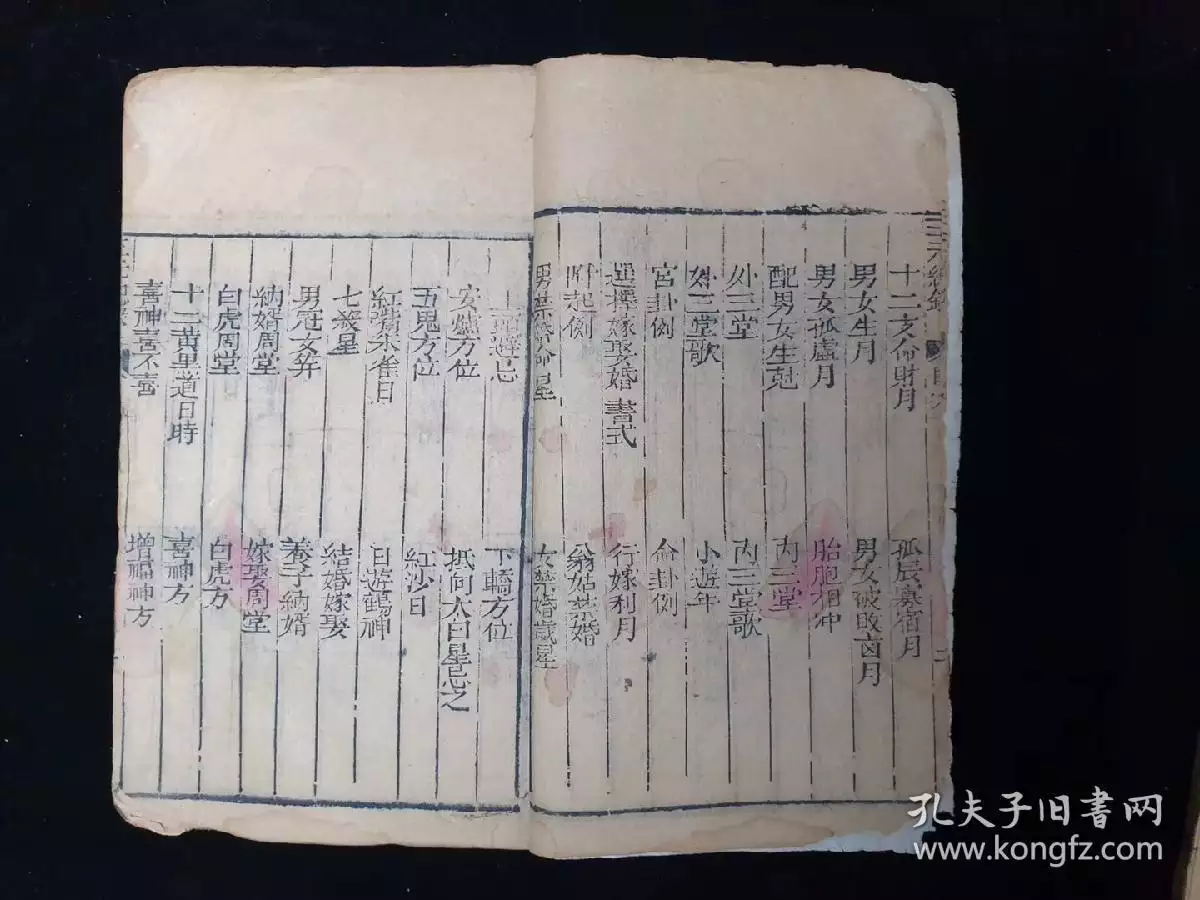 十二支命財月
孤辰寡宿月
男女生月
男女破敗凶月
男女孤虛月
胎胞相冲
配男女生尅
内三堂
外三堂
内三堂歌
外三堂歌
小遊年
宮卦例
命卦例
選擇嫁娶婚書式
行嫁利月
附起例
翁姑禁婚
男禁婚命星
女禁婚歲星
下轎方位
安爐方位
抵向太白星忌之
五鬼方位
紅沙日
紅嘴朱雀日
日遊鶴神
七殺星
結婚嫁娶
男冠女笄
養子納婿
納婿周堂
嫁娶周堂
白虎周堂
白虎方
十二黃黑道日時
喜神方
喜神喜不喜
增福神方
孔夫子旧書网
www.kongfz.com